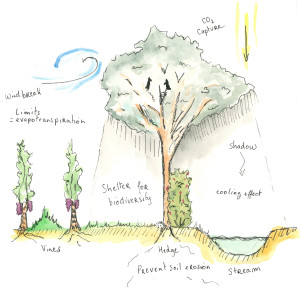 CO2
CAPTURE
Windbreak
Limits
= evapotranspiration
Shadow
Shelter for
biodiversity
cooling effect
Vines
Hedge
Prevent soil erosion
Stream